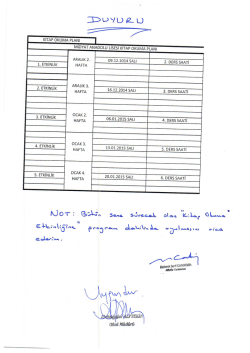 DUYURU
KİTAP OKUMA PLANI
MİDYAT ANADOLU LİSESİ KİTAP OKUMA PLANI
1. ETKİNLİK ARALIK 2. HAFTA 09.12.2014 SALI 2. DERS SAATİ
2. ETKİNLİK ARALIK 3. HAFTA 16.12.2014 SALI 3. DERS SAATİ
3. ETKİNLİK OCAK 2. HAFTA 06.01.2015 SALI 4. DERS SAATİ
4. ETKİNLİK OCAK 3. HAFTA 13.01.2015 SALI 5. DERS SAATİ
5. ETKİNLİK OCAK 4. HAFTA 20.01.2015 SALI 6. DERS SAATİ
NOT: Bütün sene sürecek olan "Kitap Okuma
Etkinliğine" program dahilinde uyulmasını rica
ederim.
Uygundur